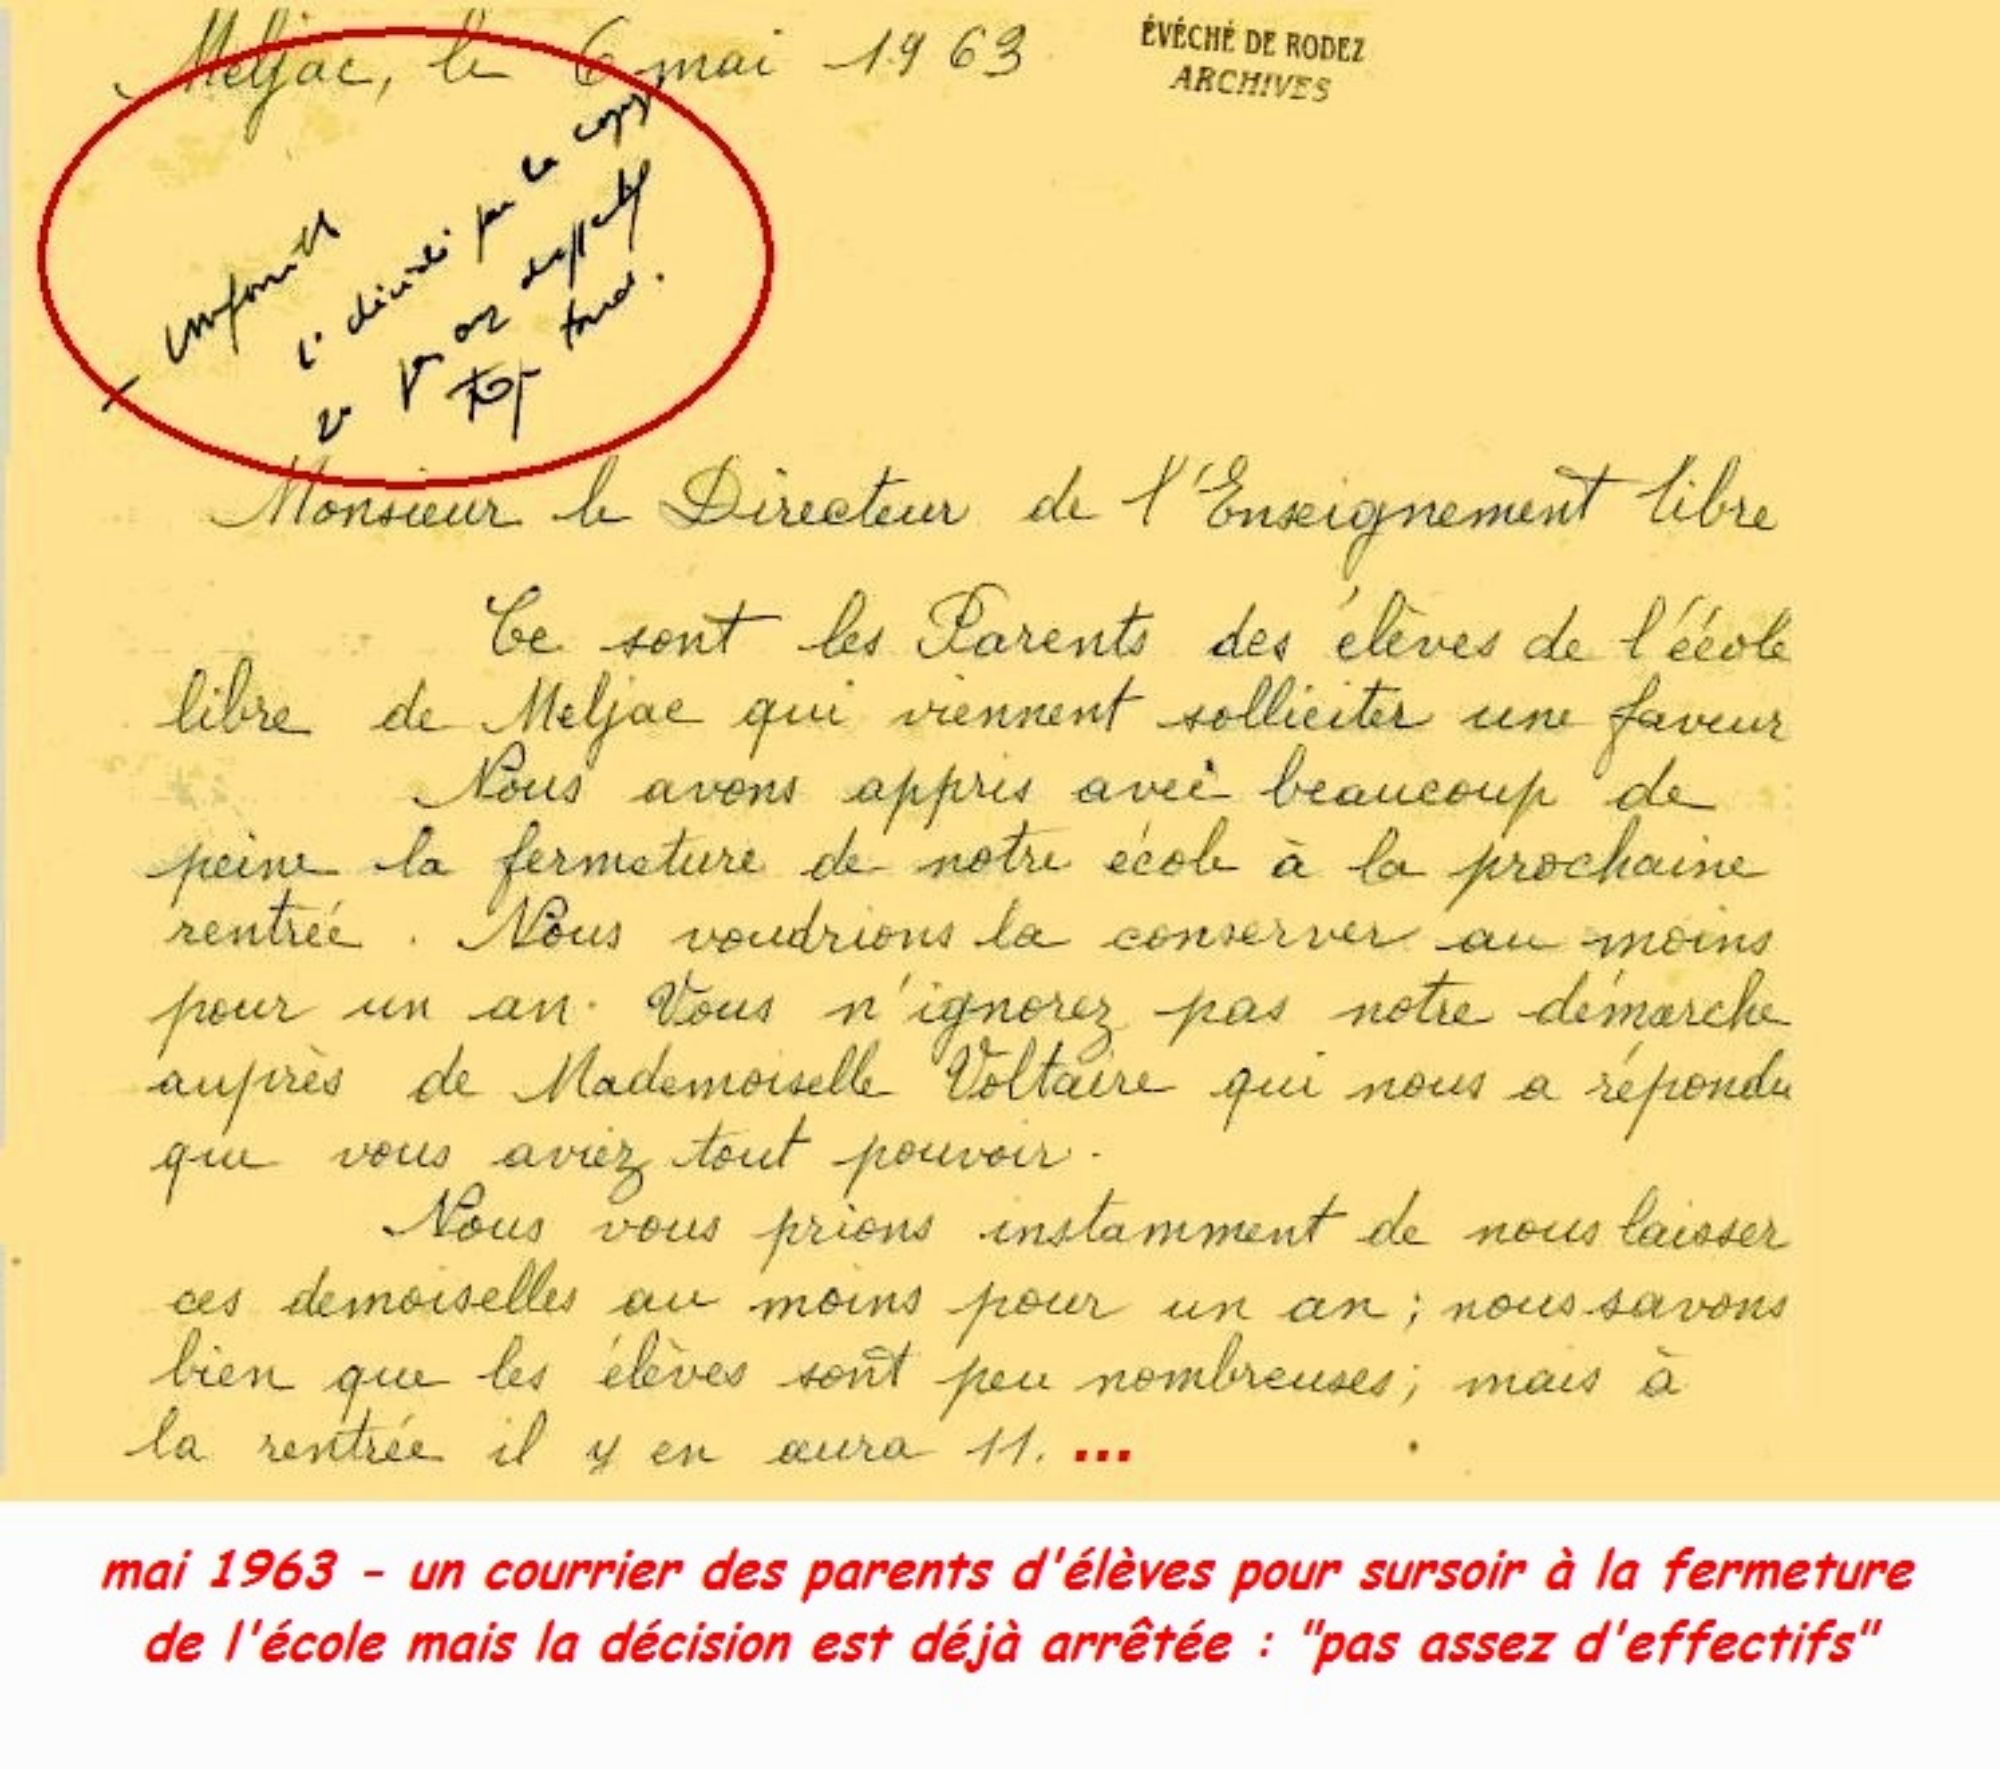 Meljac, le 6 mai 1963
ÉVÊCHÉ DE RODEZ
ARCHIVES
1° décidé par la
2° pas az d'effectif
trop tard.
Monsieur le Directeur de l'Enseignement libre
Ce sont les Parents des élèves de l'école
libre de Meljac qui viennent solliciter une faveur
Nous avons appris avec beaucoup de
peine la fermeture de notre école à la prochaine
rentrée. Nous voudrions la conserver au moins
pour un an. Vous n'ignorez pas notre démarche
auprès de Mademoiselle Voltaire qui nous a répondu
que vous aviez tout pouvoir.
Nous vous prions instamment de nous laisser
ces demoiselles au moins pour un an ; nous savons
bien que les élèves sont peu nombreuses; mais à
la rentrée il y en aura 11. ...
mai 1963 - un courrier des parents d'élèves pour sursoir à la fermeture
de l'école mais la décision est déjà arrêtée : "pas assez d'effectifs"